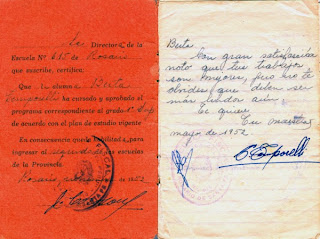 La Directora de la
Escuela Nº 615 de Rosario
que suscribe, certifica:
Que la alumna Berta
ha cursado y aprobado el
programa correspondiente al grado 1º Sup
de acuerdo con el plan de estudio vigente
En consecuencia queda habilitada para
ingresar al segundo de las escuelas
de la Provincia.
Rosario, 1952
Berta
Con gran satisfacción
noto que tus trabajos
son mejores, pero no te
olvides que deben ser
más lindos aún.
Te quiere
Tu maestra
mayo de 1952